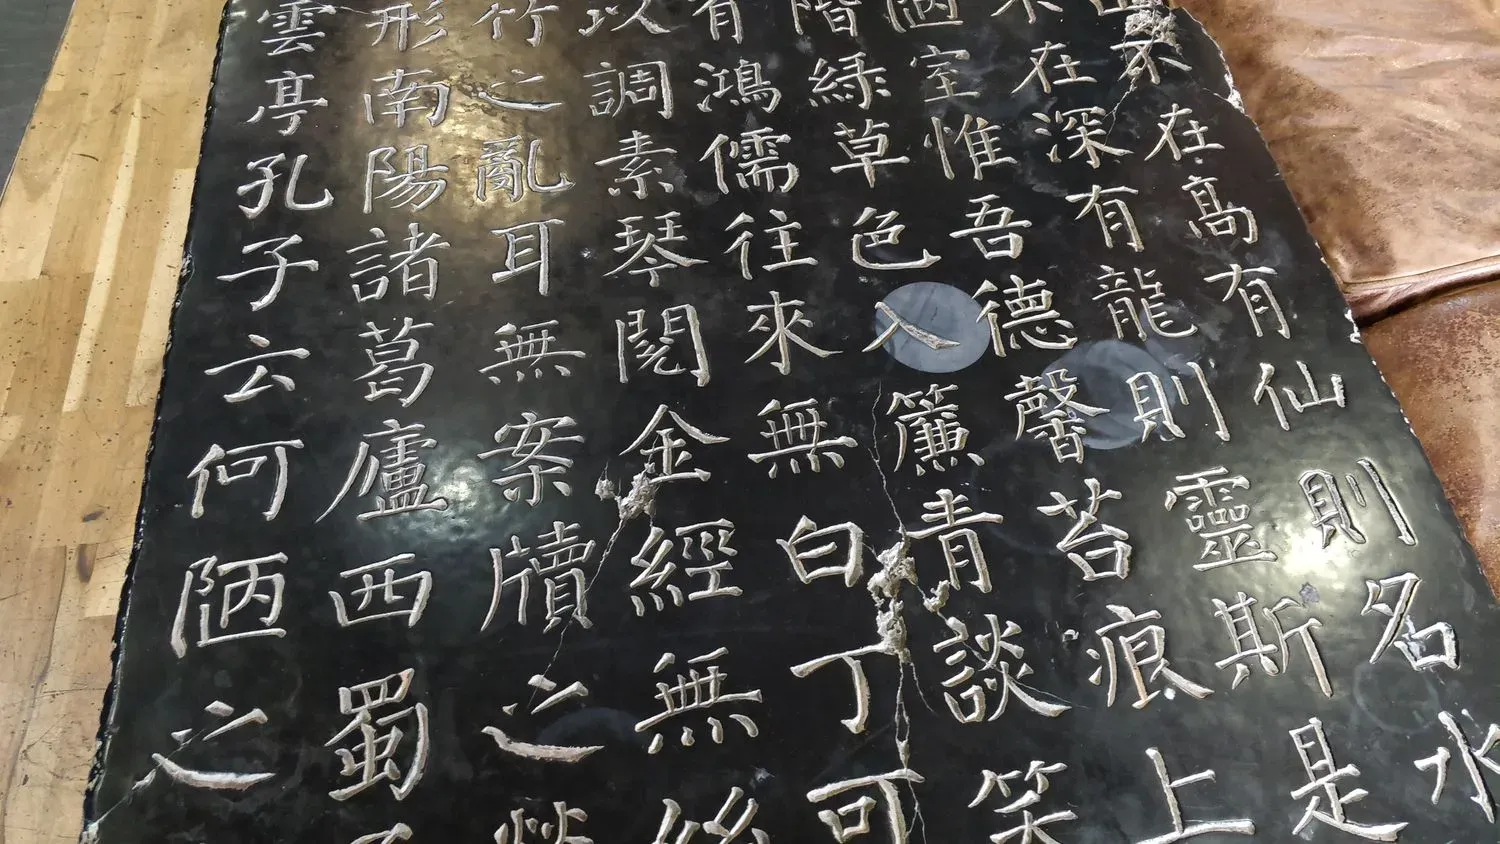 山不在高有仙則名水
不在深有龍則靈斯是
陋室惟吾德馨苔痕上
階綠草色入簾青談笑
有鴻儒往來無白丁可
以調素琴閱金經無絲
竹之亂耳無案牘之勞
形南陽諸葛廬西蜀子
雲亭孔子云何陋之